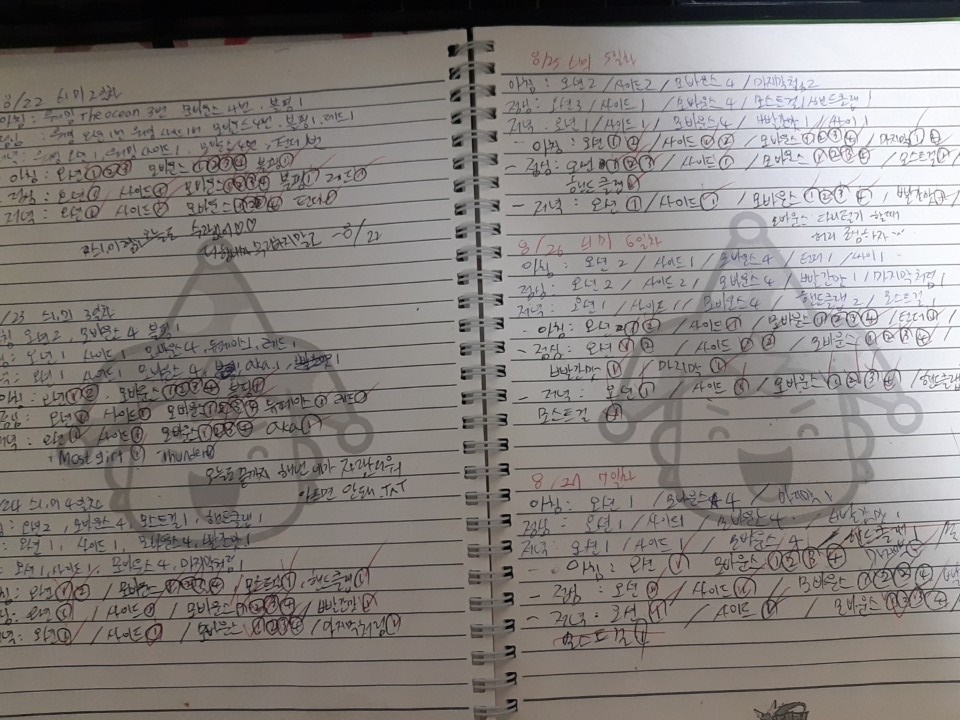 8/22 2일차
The ocean 3번 모바운스 4번, 분필 1
아침 : 오년①②③ 모바운스①②③④ 분필①
점심 : 오년① 사이드① 모바운스①②③④ 분필① 레드①
저녁 : 오년① 사이드① 모바운스①②③④ 턴더①
오늘도 수고했어♡♡
8/22
8/23 3일차
오년 2, 모바운스 4 분필 1
오년 1 사이드 1 모바운스 4, 뉴페이스 1, 레드 1
오년 1 사이드 1 모바운스 4, aka 1,
오년①② 모바운스①②③④ 분필①
오년① 사이드① 모바운스①②③④ 뉴페이스① 레드①
저녁 : 오년① 사이드① 모바운스①②③④ aka①
+ Most girl① thunder①
오늘도 끝까지 해낸 내가 자랑스러워
아프면 안돼 ㅠㅅㅠ
8/24 4일차
오년 2, 모바운스 4, 모스트걸 1, 핸드클랩 1
오년 1, 사이드 1, 모바운스 4, 빨간맛 1
오년 1, 사이드 1, 모바운스 4, 마지막처럼 1
오년①② / 모바운스①②③④ / 모스트걸①, 핸드클랩①
오년① / 사이드① / 모바운스①②③④ / 빨간맛①
저녁 : 오년① / 사이드① / 모바운스①②③④ / 마지막처럼①
8/25 5일차
아침 : 오년 2 / 사이드 2 / 모바운스 4 / 마지막처럼 2
점심 : 오년 3 / 사이드 1 / 모바운스 4 / 모스트걸 1 / 핸드클랩 1
저녁 : 오년 1 / 사이드 1 / 모바운스 4 / 빨간맛 1 / 싸이 1
- 아침 : 오년①② / 사이드①② / 모바운스①②③④ / 마지막①②
- 점심 : 오년①②③ / 사이드① / 모바운스①②③④ / 모스트걸①
핸드클랩①
- 저녁 : 오년① / 사이드① / 모바운스①②③④ / 빨간맛①
모바운스 다리털기 할때
허리 조심하자~
8/26 6일차
아침 : 오년 2 / 사이드 1 / 모바운스 4 / 턴더 1 / 싸이 1
점심 : 오년 2 / 사이드 2 / 모바운스 4 빨간맛 1 / 마지막처럼 1
저녁 : 오년 1 / 사이드 1 / 모바운스 4 / 핸드클랩 2 / 모스트걸 1
- 아침 : 오년①② / 사이드① / 모바운스①②③④ / 턴더①
- 점심 : 오년①② / 사이드①② / 모바운스①②③④
빨간맛① / 마지막①
- 저녁 : 오년① / 사이드① / 모바운스①②③④ / 핸드클랩
모스트걸①
8/27 7일차
아침 : 오년 1 / 모바운스 4 / 마지막 1
점심 : 오년 1 / 사이드 1 / 모바운스 4 / 빨간맛 1
저녁 : 오년 1 / 사이드 1 / 모바운스 4 / 핸드클랩 1
- 아침 : 오년① 모바운스①②③④
- 점심 : 오년① / 사이드① / 모바운스①②③④
- 저녁 : 오년① / 사이드① / 모바운스①②③④
모스트걸①